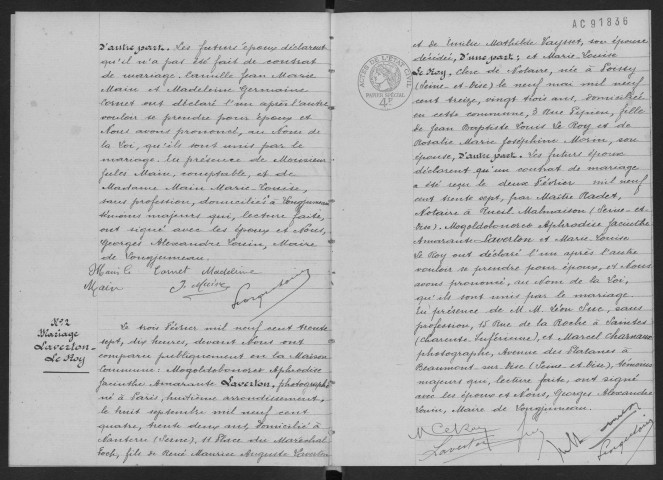 d'autre part. Les futurs époux déclarent
qu'il n'a pas été fait de contrat
de mariage. Camille Jean Marie
Main et Madeleine Germaine
Cornet ont déclaré l'un après l'autre
vouloir se prendre pour époux et
Nous avons prononcé, au Nom de
la Loi, qu'ils sont unis par le
mariage. En présence de Monsieur
Jules Main, comptable, et de
Madame Main Marie-Louise,
sans profession, domiciliés à Longjumeau
témoins majeurs qui, lecture faite,
ont signé avec les époux et Nous,
Georges Alexandre Louin, Maire
de Longjumeau.
Cornet Madeleine
Main
N° 2
Mariage
Laverton-
Le Roy
Le trois Février mil neuf cent trente
sept, dix heures, devant Nous ont
comparu publiquement en la Maison
Commune: Mogoldobonorco Aphrodise
Jacinthe Amarante Laverton, photographe
né à Paris, huitième arrondissement,
le huit septembre mil neuf cent
quatre, trente deux ans, domicilié à
Nanterre (Seine), 11 Place du Maréchal
Foch, fils de René Maurice Auguste Laverton
AC 91836
ACTES DE L'ÉTAT CIVIL
PAPIER SPÉCIAL
4F
et de Emilie Mathilde son épouse
décédée, d'une part; et Marie Louise
Le Roy, clerc de Notaire, née à Poissy
(Seine et Oise) le neuf mai mil neuf
cent treize, vingt trois ans, domiciliée
en cette commune, 3 Rue fille
de Jean Baptiste Louis Le Roy et de
Rosalie Marie Joséphine Morin, son
épouse, d'autre part. Les futurs époux
déclarent qu'un contrat de mariage
a été reçu le deux Février mil neuf
cent trente sept, par Maître Radet,
Notaire à Rueil Malmaison (Seine-et-
Oise). Mogoldobonorco Aphrodise Jacinthe
Amarante Laverton et Marie Louise
Le Roy ont déclaré l'un après l'autre
vouloir se prendre pour époux, et Nous
avons prononcé, au Nom de la Loi,
qu'ils sont unis par le mariage.
En présence de M. M. Léon sans
profession, 15 Rue de la Roche à Saintes
(Charente Inférieure), et Marcel
photographe, Avenue des Platanes à
Beaumont sur Oise (Seine-et-Oise), témoins
majeurs qui, lecture faite, ont signé
avec les époux et Nous, Georges Alexandre
Louin, Maire de Longjumeau.
M Le Roy
Laverton